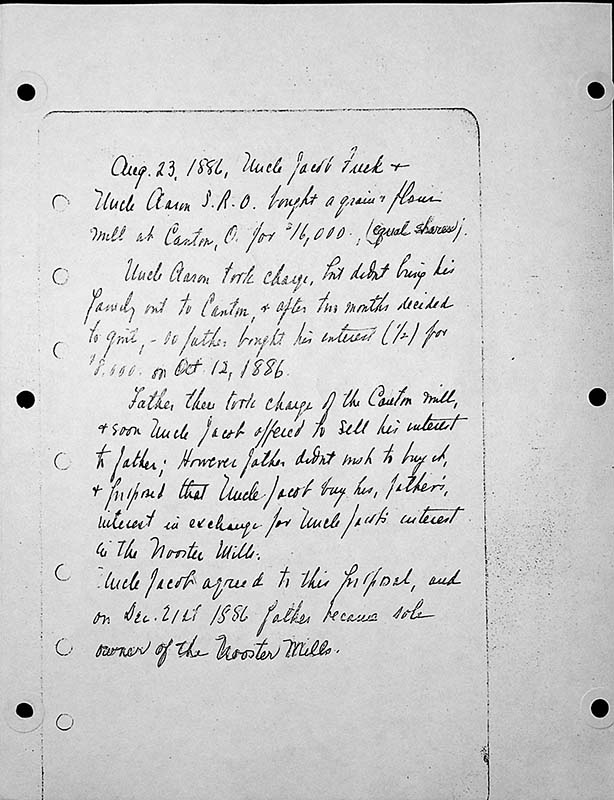 Aug. 23, 1886, Uncle Jacob Fuck +
Uncle Aaron S.R.O. bought a grain + flour
mill at Canton, O. for $16,000., (equal shares).
Uncle Aaron took charge, but didnt bring his
family out to Canton, + after two months decided
to quit, - so father bought his interest (1/2) for
$8,000. on Oct 12, 1886.
Father then took charge of the Canton mill,
+ soon Uncle Jacob offered to sell his interest
to father; However father didnt wish to buy it,
+ proposed that Uncle Jacob buy his, father's,
interest in exchange for Uncle Jacob's interest
in the Wooster Mills.
Uncle Jacob agreed to this proposal, and
on Dec. 21st 1886 father became sole
owner of the Wooster Mills.